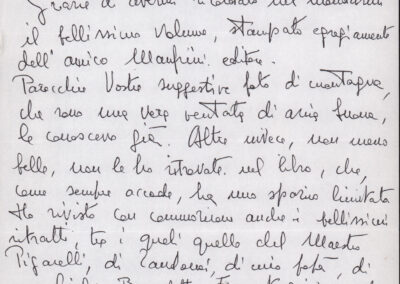 Grazie di avermi ricordato nel mandarmi
il bellissimo volume, stampato egregiamente
dell'amico Manfrini editore.
Parecchie Vostre suggestive foto di montagna,
che sono una vera ventata di aria buona,
le conoscevo già. Altre invece, non meno
belle, non le ho ritrovate nel libro, che,
come sempre accade, ha uno spazio limitato
Ho rivisto con commozione anche i bellissimi
ritratti, tra i quali quello del Maestro
Pigarelli, di di mio papà, di